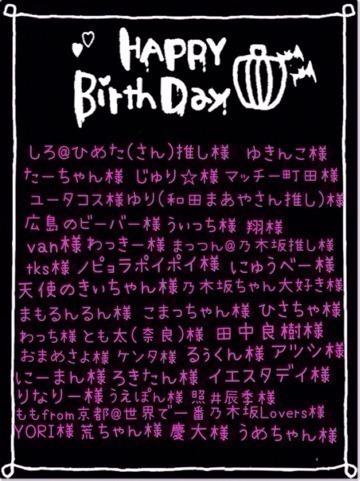 HAPPY
BirthDay
しろ@ひめた(さん)推し様 ゆきんこ様
たーちゃん様 じゅり☆様 マッチー町田様
ユータコス様ゆり(和田まあやさん推し)様
広島のビーバー様ういっち様 翔様
van様わっきー様 まっつん@乃木坂推し様
tks様 ノピョラポイポイ様 にゅうべー様
天使のきぃちゃん様乃木坂ちゃん大好き様
まもるんるん様 こまっちゃん様 ひさちゃ様
わっち様とも太(奈良)様 田中良樹様
おまめさよ様 ケンタ様 るぅくん様 アツシ様
にーまん様 ろきたん様 イエスタデイ様
りなりー様うえぽん様 照井辰季様
ももfrom京都@世界で一番乃木坂Lovers様
YORI様 荒ちゃん様 慶大様 うめちゃん様